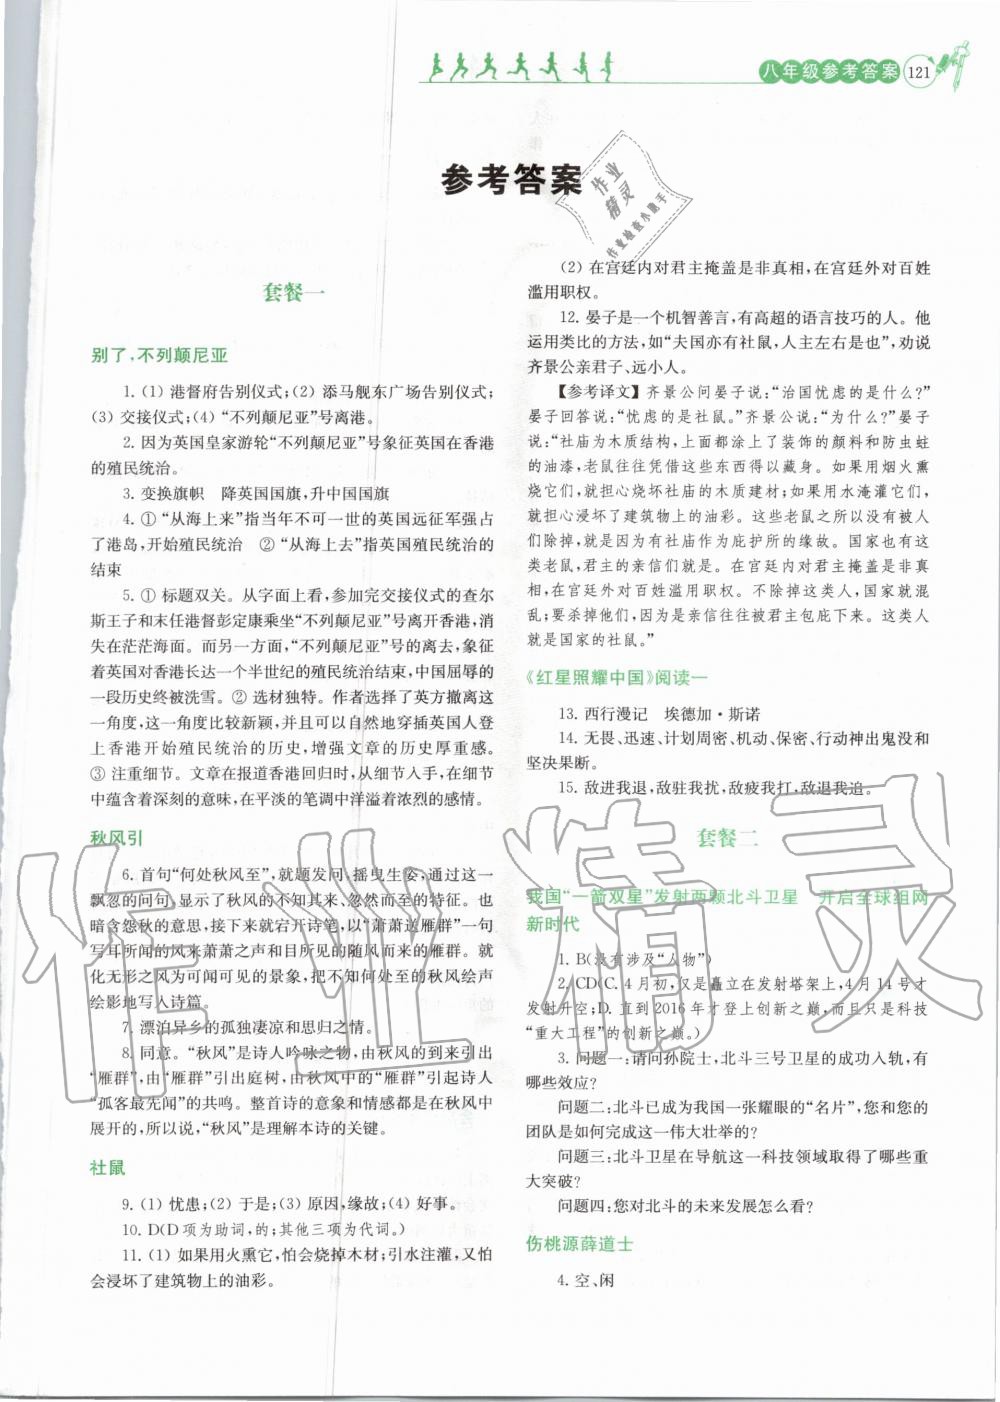 八年级参考答案 121
参考答案
套餐一
别了,不列颠尼亚
1. (1) 港督府告别仪式;(2) 添马舰东广场告别仪式;
(3) 交接仪式;(4) “不列颠尼亚”号离港。
2. 因为英国皇家游轮“不列颠尼亚”号象征英国在香港
的殖民统治。
3. 变换旗帜　降英国国旗,升中国国旗
4. ① “从海上来”指当年不可一世的英国远征军强占
了港岛,开始殖民统治　② “从海上去”指英国殖民统治的
结束
5. ① 标题双关。从字面上看,参加完交接仪式的查尔
斯王子和末任港督彭定康乘坐“不列颠尼亚”号离开香港,消
失在茫茫海面。而另一方面,“不列颠尼亚”号的离去,象征
着英国对香港长达一个半世纪的殖民统治结束,中国屈辱的
一段历史终被洗雪。② 选材独特。作者选择了英方撤离这
一角度,这一角度比较新颖,并且可以自然地穿插英国人登
上香港开始殖民统治的历史,增强文章的历史厚重感。
③ 注重细节。文章在报道香港回归时,从细节入手,在细节
中蕴含着深刻的意味,在平淡的笔调中洋溢着浓烈的感情。
秋风引
6. 首句“何处秋风至”,就题发问,摇曳生姿,通过这一
飘忽的问句,显示了秋风的不知其来、忽然而至的特征。也
暗含怨秋的意思,接下来就宕开诗笔,以“萧萧送雁群”一句
写耳所闻的风来萧萧之声和目所见的随风而来的雁群。就
化无形之风为可闻可见的景象,把不知何处至的秋风绘声
绘影地写入诗篇。
7. 漂泊异乡的孤独凄凉和思归之情。
8. 同意。“秋风”是诗人吟咏之物,由秋风的到来引出
“雁群”,由“雁群”引出庭树,由秋风中的“雁群”引起诗人
“孤客最先闻”的共鸣。整首诗的意象和情感都是在秋风中
展开的,所以说,“秋风”是理解本诗的关键。
社鼠
9. (1) 忧患;(2) 于是;(3) 原因,缘故;(4) 好事。
10. D(D 项为助词,的;其他三项为代词。)
11. (1) 如果用火熏它,怕会烧掉木材;引水注灌,又怕
会浸坏了建筑物上的油彩。
(2) 在宫廷内对君主掩盖是非真相,在宫廷外对百姓
滥用职权。
12. 晏子是一个机智善言,有高超的语言技巧的人。他
运用类比的方法,如“夫国亦有社鼠,人主左右是也”,劝说
齐景公亲君子、远小人。
【参考译文】齐景公问晏子说:“治国忧虑的是什么?”
晏子回答说:“忧虑的是社鼠。”齐景公说:“为什么?”晏子
说:“社庙为木质结构,上面都涂上了装饰的颜料和防虫蛀
的油漆,老鼠往往凭借这些东西得以藏身。如果用烟火熏
烧它们,就担心烧坏社庙的木质建材;如果用水淹灌它们,
就担心浸坏了建筑物上的油彩。这些老鼠之所以没有被人
们除掉,就是因为有社庙作为庇护所的缘故。国家也有这
类老鼠,君主的亲信们就是。在宫廷内对君主掩盖是非真
相,在宫廷外对百姓滥用职权。不除掉这类人,国家就混
乱;要杀掉他们,因为是亲信往往被君主包庇下来。这类人
就是国家的社鼠。”
《红星照耀中国》阅读一
13. 西行漫记　埃德加·斯诺
14. 无畏、迅速、计划周密、机动、保密、行动神出鬼没和
坚决果断。
15. 敌进我退,敌驻我扰,敌疲我打,敌退我追。
套餐二
我国“一箭双星”发射两颗北斗卫星　开启全球组网
新时代
1. B(没有涉及“人物”)
2. CD(C. 4 月初,仅是矗立在发射塔架上,4 月 14 号才
发射升空;D. 直到 2016 年才登上创新之巅,而且只是科技
“重大工程”的创新之巅。)
3. 问题一:请问孙院士,北斗三号卫星的成功入轨,有
哪些效应?
问题二:北斗已成为我国一张耀眼的“名片”,您和您的
团队是如何完成这一伟大壮举的?
问题三:北斗卫星在导航这一科技领域取得了哪些重
大突破?
问题四:您对北斗的未来发展怎么看?
伤桃源薛道士
4. 空、闲
作业
精灵
作业检查小助手
作业精灵